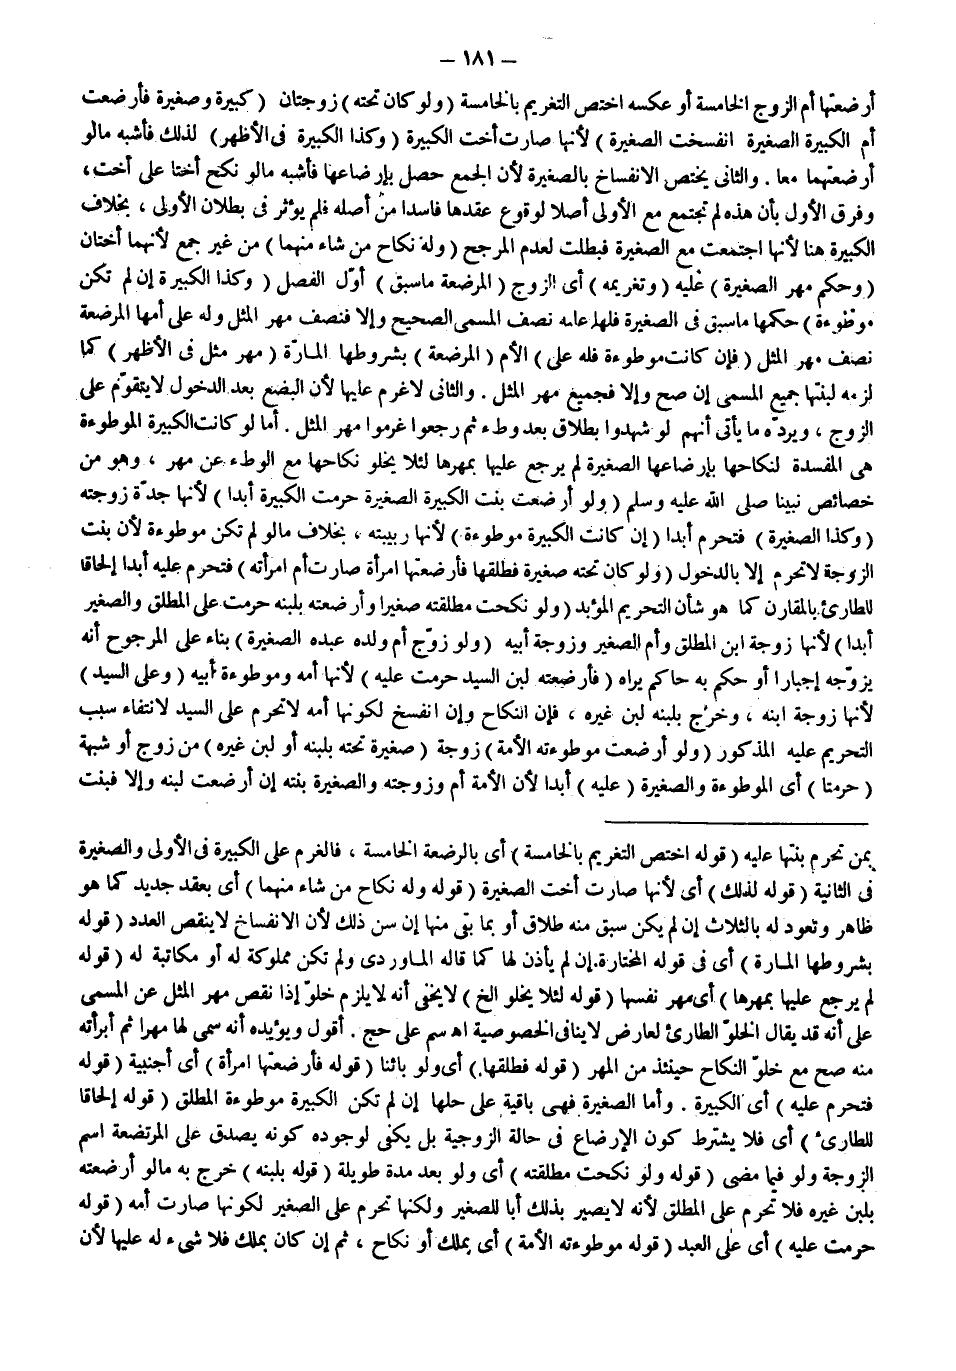 — ١٨١ —
أرضعتها أم الزوج الخامسة أو عكسه اختص التغريم بالخامسة ( ولو كان تحته ) زوجتان ( كبيرة وصغيرة فأرضعت
أم الكبيرة الصغيرة انفسخت الصغيرة ) لأنها صارت أخت الكبيرة ( وكذا الكبيرة فى الأظهر ) لذلك فأشبه مالو
أرضعتهما معا . والثانى يختص الانفساخ بالصغيرة لأن الجمع حصل بإرضاعها فأشبه مالو نكح أختا على أخت ،
وفرق الأول بأن هذه لم تجتمع مع الأولى أصلا لوقوع عقدها فاسدا من أصله فلم يوثر فى بطلان الأولى ، بخلاف
الكبيرة هنا لأنها اجتمعت مع الصغيرة فبطلت لعدم المرجح ( وله نكاح من شاء منهما ) من غير جمع لأنهما أختان
( وحكم مهر الصغيرة ) عليه ( وتغريمه ) أى الزوج ( المرضعة ماسبق ) أوّل الفصل ( وكذا الكبيرة إن لم تكن
موطوءة ) حكمها ماسبق فى الصغيرة فلها عليه نصف المسمى الصحيح وإلا فنصف مهر المثل وله على أمها المرضعة
نصف مهر المثل ( فإن كانت موطوءة فله على ) الأم ( المرضعة ) بشروطها المارّة ( مهر مثل فى الأظهر ) كما
لزمه لبنتها جميع المسمى إن صح وإلا فجميع مهر المثل . والثانى لاغرم عليها لأن البضع بعد الدخول لايتقوّم على
الزوج ، ويردّه ما يأتى أنهم لو شهدوا بطلاق بعد وطء ثم رجعوا غرموا مهر المثل . أما لو كانت الكبيرة الموطوءة
هى المفسدة لنكاحها بإرضاعها الصغيرة لم يرجع عليها بمهرها لئلا يخلو نكاحها مع الوطء عن مهر ، وهو من
خصائص نبينا صلى الله عليه وسلم ( ولو أرضعت بنت الكبيرة الصغيرة حرمت الكبيرة أبدا ) لأنها جدّة زوجته
( وكذا الصغيرة ) فتحرم أبدا ( إن كانت الكبيرة موطوءة ) لأنها ربيبته ، بخلاف مالو لم تكن موطوءة لأن بنت
الزوجة لاتحرم إلا بالدخول ( ولو كان تحته صغيرة فطلقها فأرضعتها امرأة صارت أم امرأته ) فتحرم عليه أبدا إلحاقا
للطارئ بالمقارن كما هو شأن التحريم المؤبد ( ولو نكحت مطلقته صغيرا وأرضعته بلبنه حرمت على المطلق والصغير
أبدا ) لأنها زوجة ابن المطلق وأم الصغير وزوجة أبيه ( ولو زوّج أم ولده عبده الصغيرة ) بناء على المرجوح أنه
يزوّجه إجبارا أو حكم به حاكم يراه ( فأرضعته لبن السيد حرمت عليه ) لأنها أمه وموطوءة أبيه ( وعلى السيد )
لأنها زوجة ابنه ، وخرج بلبنه لبن غيره ، فإن النكاح وإن انفسخ لكونها أمه لاتحرم على السيد لانتفاء سبب
التحريم عليه المذكور ( ولو أرضعت موطوءته الأمة ) زوجة ( صغيرة تحته بلبنه أو لبن غيره ) من زوج أو شبهة
( حرمتا ) أى الموطوءة والصغيرة ( عليه ) أبدا لأن الأمة أم وزوجته والصغيرة بنته إن أرضعت لبنه وإلا فبنت
بمن تحرم بنتها عليه ( قوله اختص التغريم بالخامسة ) أى بالرضعة الخامسة ، فالغرم على الكبيرة فى الأولى والصغيرة
فى الثانية ( قوله لذلك ) أى لأنها صارت أخت الصغيرة ( قوله وله نكاح من شاء منهما ) أى بعقد جديد كما هو
ظاهر وتعود له بالثلاث إن لم يكن سبق منه طلاق أو بما بقى منها إن سن ذلك لأن الانفساخ لاينقص العدد ( قوله
بشروطها المارة ) أى فى قوله المختارة.إن لم يأذن لها كما قاله الماوردى ولم تكن مملوكة له أو مكاتبة له ( قوله
لم يرجع عليها بمهرها ) أى مهر نفسها ( قوله لئلا يخلو الخ ) لايخفى أنه لايلزم خلوّ إذا نقص مهر المثل عن المسمى
على أنه قد يقال الخلوّ الطارئ لعارض لاينافى الخصوصية اهـ سم على حج . أقول ويؤيده أنه سمى لها مهرا ثم أبرأته
منه صح مع خلوّ النكاح حينئذ من المهر ( قوله فطلقها ) أى ولو بائنا ( قوله فأرضعتها امرأة ) أى أجنبية ( قوله
فتحرم عليه ) أى الكبيرة . وأما الصغيرة فهى باقية على حلها إن لم تكن الكبيرة موطوءة المطلق ( قوله إلحاقا
للطارئ ) أى فلا يشترط كون الإرضاع فى حالة الزوجية بل يكفى لوجوده كونه يصدق على المرتضعة اسم
الزوجة ولو فيما مضى ( قوله ولو نكحت مطلقته ) أى ولو بعد مدة طويلة ( قوله بلبنه ) خرج به مالو أرضعته
بلبن غيره فلا تحرم على المطلق لأنه لايصير بذلك أبا للصغير ولكنها تحرم على الصغير لكونها صارت أمه ( قوله
حرمت عليه ) أى على العبد ( قوله موطوءته الأمة ) أى بملك أو نكاح ، ثم إن كان بملك فلا شىء له عليها لأن